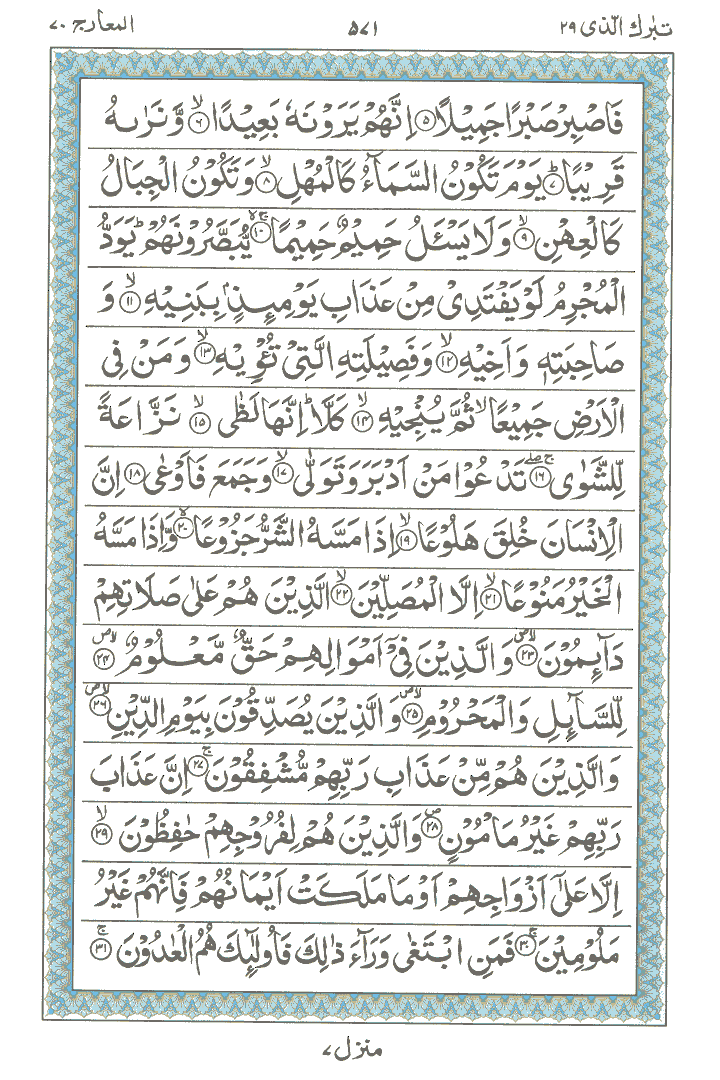 تبٰرك الّذى ٢٩ ٥٧١ المعارج ٧٠
فَاصْبِرْ صَبْرًا جَمِيْلًا ﴿٥﴾ اِنَّهُمْ يَرَوْنَهٗ بَعِيْدًا ۙ﴿٦﴾ وَّ نَرٰىهُ
قَرِيْبًا ؕ﴿٧﴾ يَوْمَ تَكُوْنُ السَّمَآءُ كَالْمُهْلِ ۙ﴿٨﴾ وَ تَكُوْنُ الْجِبَالُ
كَالْعِهْنِ ۙ﴿٩﴾ وَ لَا يَسْـَٔلُ حَمِيْمٌ حَمِيْمًا ۚۖ﴿١٠﴾ يُّبَصَّرُوْنَهُمْ ؕ يَوَدُّ
الْمُجْرِمُ لَوْ يَفْتَدِىْ مِنْ عَذَابِ يَوْمِئِذٍۭ بِبَنِيْهِ ۙ﴿١١﴾ وَ
صَاحِبَتِهٖ وَ اَخِيْهِ ۙ﴿١٢﴾ وَ فَصِيْلَتِهِ الَّتِىْ تُـْٔوِيْهِ ۙ﴿١٣﴾ وَ مَنْ فِى
الْاَرْضِ جَمِيْعًا ۙ ثُمَّ يُنْجِيْهِ ۙ﴿١٤﴾ كَلَّا ؕ اِنَّهَا لَظٰى ۙ﴿١٥﴾ نَزَّاعَةً
لِّلشَّوٰى ۚۖ﴿١٦﴾ تَدْعُوْا مَنْ اَدْبَرَ وَ تَوَلّٰى ۙ﴿١٧﴾ وَ جَمَعَ فَاَوْعٰى ﴿١٨﴾ اِنَّ
الْاِنْسَانَ خُلِقَ هَلُوْعًا ۙ﴿١٩﴾ اِذَا مَسَّهُ الشَّرُّ جَزُوْعًا ۙ﴿٢٠﴾ وَّ اِذَا مَسَّهُ
الْخَيْرُ مَنُوْعًا ۙ﴿٢١﴾ اِلَّا الْمُصَلِّيْنَ ۙ﴿٢٢﴾ الَّذِيْنَ هُمْ عَلٰى صَلَاتِهِمْ
دَآئِمُوْنَ ۪ۙ﴿٢٣﴾ وَ الَّذِيْنَ فِىْۤ اَمْوَالِهِمْ حَقٌّ مَّعْلُوْمٌ ۪ۙ﴿٢٤﴾
لِّلسَّآئِلِ وَ الْمَحْرُوْمِ ۪ۙ﴿٢٥﴾ وَ الَّذِيْنَ يُصَدِّقُوْنَ بِيَوْمِ الدِّيْنِ ۪ۙ﴿٢٦﴾
وَ الَّذِيْنَ هُمْ مِّنْ عَذَابِ رَبِّهِمْ مُّشْفِقُوْنَ ۚ﴿٢٧﴾ اِنَّ عَذَابَ
رَبِّهِمْ غَيْرُ مَاْمُوْنٍ ۪﴿٢٨﴾ وَ الَّذِيْنَ هُمْ لِفُرُوْجِهِمْ حٰفِظُوْنَ ۙ﴿٢٩﴾
اِلَّا عَلٰۤى اَزْوَاجِهِمْ اَوْ مَا مَلَكَتْ اَيْمَانُهُمْ فَاِنَّهُمْ غَيْرُ
مَلُوْمِيْنَ ۚ﴿٣٠﴾ فَمَنِ ابْتَغٰى وَرَآءَ ذٰلِكَ فَاُولٰٓئِكَ هُمُ الْعٰدُوْنَ ۚ﴿٣١﴾
منزل ٧